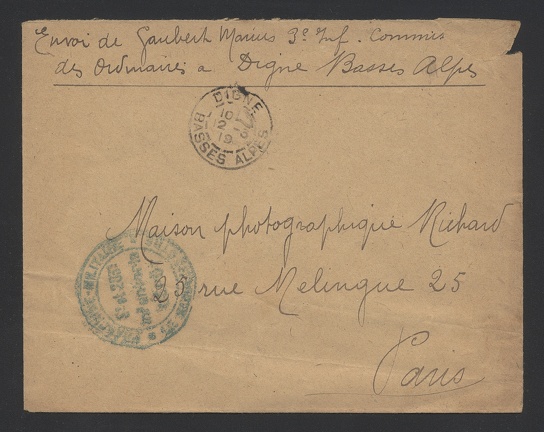 Envoi de Gaubert Marius 3e Inf. Commis
des Ordinaires a Digne Basses Alpes
DIGNE
10
2 - 3
19
BASSES ALPES
Maison photographique Richard
25 rue Melingue 25
Paris